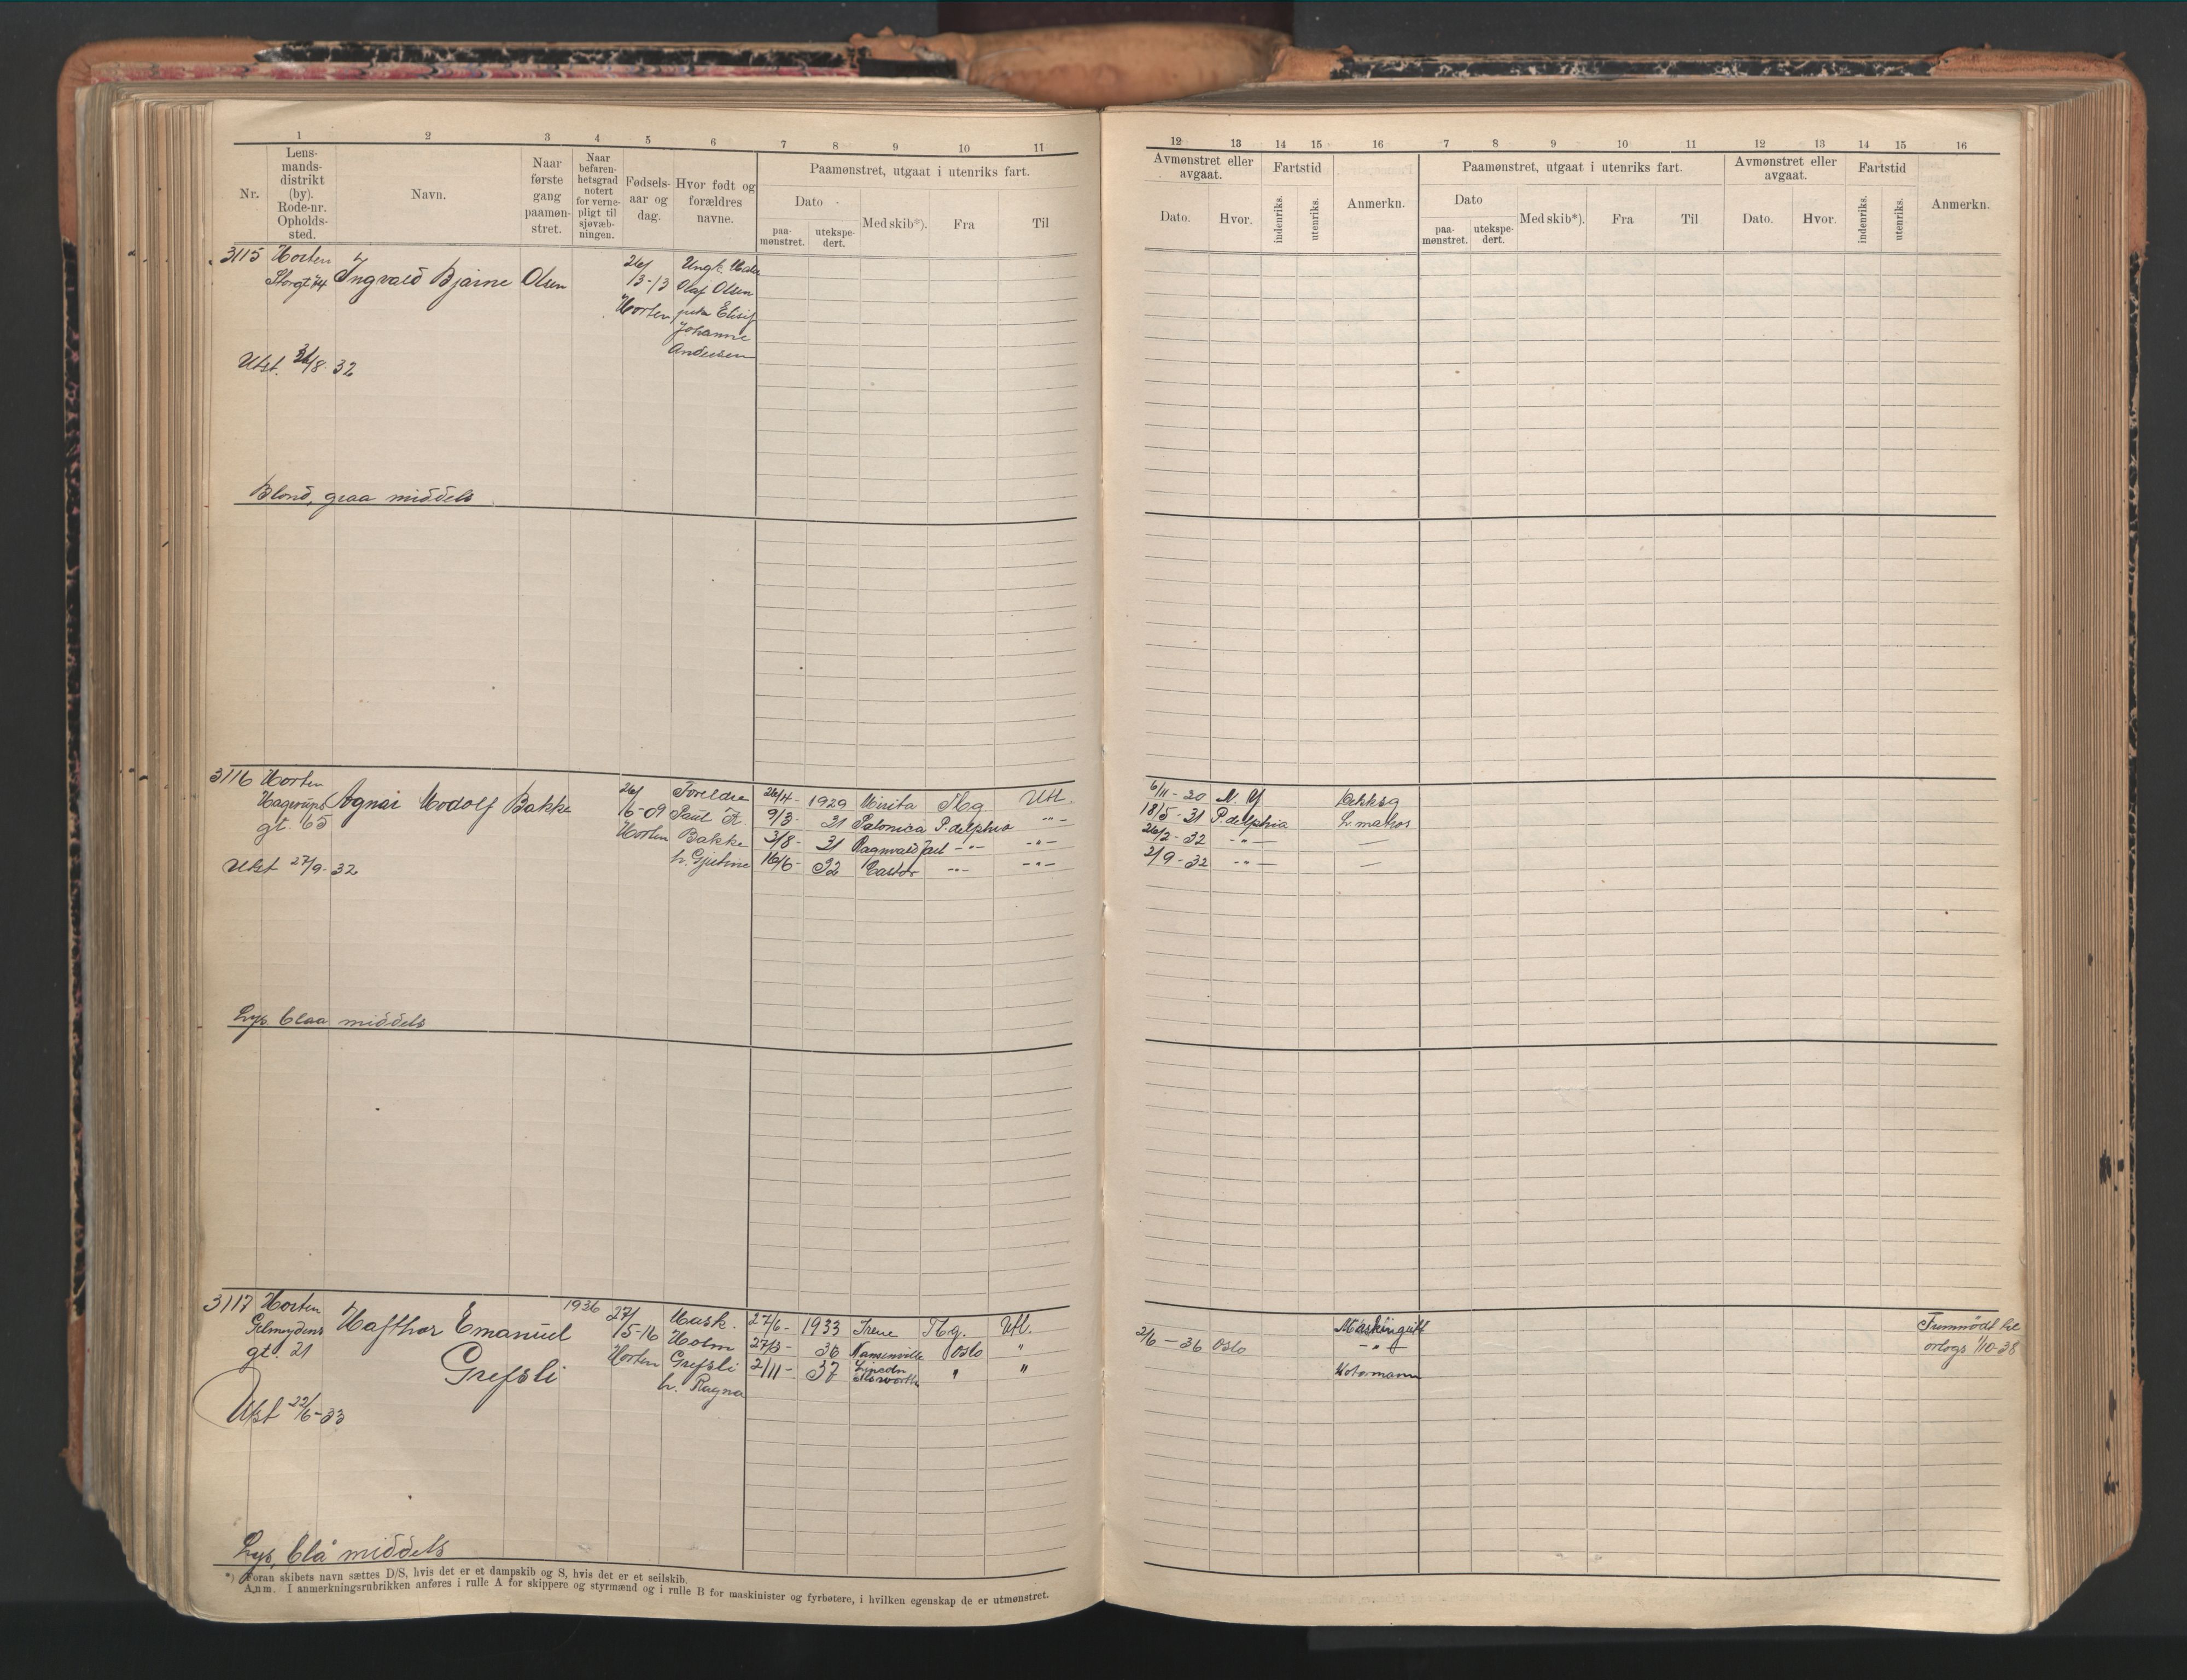 1 2 3 4 5 6 7 8 9 10 11
Nr.
Lens-
mands-
distrikt
(by).
Rode-nr.
Opholds-
sted.
Navn.
Naar
første
gang
paamøn-
stret.
Naar
befaren-
hetsgrad
notert
for verne-
pligt til
sjøvæb-
ningen.
Fødsels-
aar og
dag.
Hvor født og
forældres
navne.
Paamønstret, utgaat i utenriks fart.
Dato
paa-
mønstret.
utekspe-
dert.
Med skib*).
Fra
Til
3115 Horten
Storgt 74 Ingvald Bjarne Olsen
26/
13-13
Horten
Ungk.
Olaf Olsen
Elisif
Johanne
Andersen
Utst. /8. 32
Blond, graa middels
3116 Horten
Hagerups
gt. 65
Agnar Hodolf Bakke
26/
6-09
Horten
Foreldre
Paul A.
Bakke
h. Gjertine
26/4- 1929 Mirita Tbg Utl.
9/3- 31 Salonica P.delphia -"-
3/8- 31 Ragnvald Jarl -"- -"-
16/6- 32 Castor -"- -"-
Utst 27/9-32
Lys blaa middels
3117 Horten
gt. 21
Hafthor Emanuel
Grefsli
1936
27/
5-16
Horten
Mask.
Holm
Grefsli
h. Ragna
27/6- 1933 Irene Tbg. Utl.
27/3- 36 Nansenville Oslo "
2/11- 37 Lincoln
Elsworth " "
Utst 22/6-33
Lys, blå middels
*) Foran skibets navn sættes D/S, hvis det er et dampskib og S, hvis det er et seilskib.
Anm. I anmerkningsrubrikken anføres i rulle A for skippere og styrmænd og i rulle B for maskinister og fyrbøtere, i hvilken egenskap de er utmønstret.
12 13 14 15 16 7 8 9 10 11 12 13 14 15 16
Avmønstret eller
avgaat.
Dato.
Hvor.
Fartstid
indenriks.
utenriks.
Anmerkn.
Paamønstret, utgaat i utenriks fart.
Dato
paa-
mønstret.
utekspe-
dert.
Med skib*).
Fra
Til
Avmønstret eller
avgaat.
Dato.
Hvor.
Fartstid
indenriks.
utenriks.
Anmerkn.
6/11-30 N.Y Dekksg
18/5-31 P.delphia L. matros
26/2-32 -"- —
2/9-32 -"- —
Maskingutt
2/6-36 Oslo -"-
Motormann
Tummødt til
orlogs 1/10-38